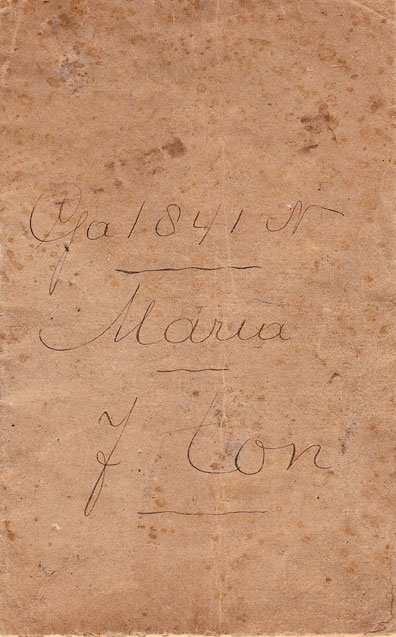 Ya 1841 N
Maria
7. ton